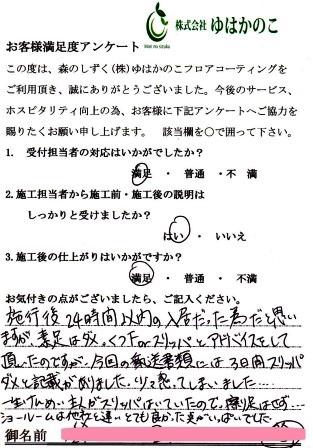 株式会社 ゆはかのこ
Mori no sizuku
お客様満足度アンケート
この度は、森のしずく(株)ゆはかのこフロアコーティングを
ご利用頂き、誠にありがとうございました。今後のサービス、
ホスピタリティ向上の為、お客様に下記アンケートへご協力を
賜りたくお願い申し上げます。 該当欄を○で囲って下さい。
1. 受付担当者の対応はいかがでしたか?
満足 ・ 普通 ・不 満
2.施工担当者から施工前・施工後の説明は
しっかりと受けましたか?
はい ・ いいえ
3.施工後の仕上がりはいかがですか?
満足 ・ 普通 ・ 不満
お気付きの点がございましたら、ご記入ください。
施行後24時間以内の入居だった為だと思い
ますが、素足はダメ。くつ下orスリッパとアドバイスをして
頂いたのですが、今回の郵送書類には3日間スリッパ
ダメと記載がありました。
しまいました…
主人がスリッパはいていたので。
ショールームは他社と違いとても良かった 笑がいっぱいでした
御名前